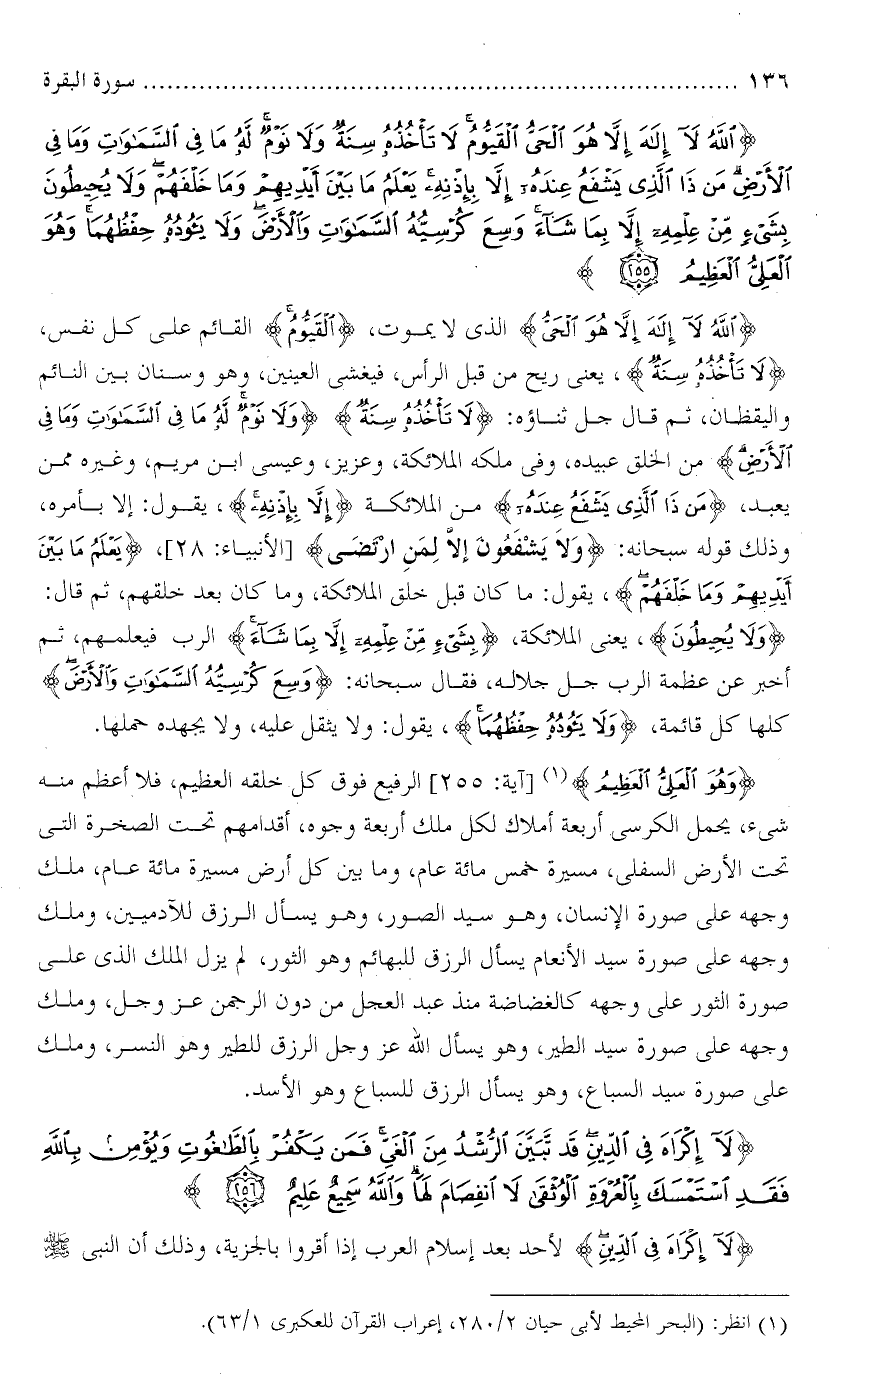 ١٣٦ ........................................ سورة البقرة
﴿ٱللَّهُ لَآ إِلَٰهَ إِلَّا هُوَ ٱلْحَىُّ ٱلْقَيُّومُ ۚ لَا تَأْخُذُهُۥ سِنَةٌ وَلَا نَوْمٌ ۚ لَّهُۥ مَا فِى ٱلسَّمَٰوَٰتِ وَمَا فِى
ٱلْأَرْضِ ۗ مَن ذَا ٱلَّذِى يَشْفَعُ عِندَهُۥٓ إِلَّا بِإِذْنِهِۦ ۚ يَعْلَمُ مَا بَيْنَ أَيْدِيهِمْ وَمَا خَلْفَهُمْ ۖ وَلَا يُحِيطُونَ
بِشَىْءٍ مِّنْ عِلْمِهِۦٓ إِلَّا بِمَا شَآءَ ۚ وَسِعَ كُرْسِيُّهُ ٱلسَّمَٰوَٰتِ وَٱلْأَرْضَ ۖ وَلَا يَـُٔودُهُۥ حِفْظُهُمَا ۚ وَهُوَ
ٱلْعَلِىُّ ٱلْعَظِيمُ ٢٥٥ ﴾
﴿ٱللَّهُ لَآ إِلَٰهَ إِلَّا هُوَ ٱلْحَىُّ﴾ الذى لا يموت، ﴿ٱلْقَيُّومُ ۚ﴾ القائم على كل نفس،
﴿لَا تَأْخُذُهُۥ سِنَةٌ﴾، يعنى ريح من قبل الرأس، فيغشى العينين، وهو وسنان بين النائم
واليقظان، ثم قال جل ثناؤه: ﴿لَا تَأْخُذُهُۥ سِنَةٌ﴾ ﴿وَلَا نَوْمٌ ۚ لَّهُۥ مَا فِى ٱلسَّمَٰوَٰتِ وَمَا فِى
ٱلْأَرْضِ ۗ﴾ من الخلق عبيده، وفى ملكه الملائكة، وعزيز، وعيسى ابن مريم، وغيره ممن
يعبد، ﴿مَن ذَا ٱلَّذِى يَشْفَعُ عِندَهُۥٓ﴾ من الملائكة ﴿إِلَّا بِإِذْنِهِۦ ۚ﴾، يقول: إلا بأمره،
وذلك قوله سبحانه: ﴿وَلاَ يَشْفَعُونَ إِلاَّ لِمَنِ ارْتَضَى﴾ [الأنبياء: ٢٨]، ﴿يَعْلَمُ مَا بَيْنَ
أَيْدِيهِمْ وَمَا خَلْفَهُمْ ۖ﴾، يقول: ما كان قبل خلق الملائكة، وما كان بعد خلقهم، ثم قال:
﴿وَلَا يُحِيطُونَ﴾، يعنى الملائكة، ﴿بِشَىْءٍ مِّنْ عِلْمِهِۦٓ إِلَّا بِمَا شَآءَ ۚ﴾ الرب فيعلمهم، ثم
أخبر عن عظمة الرب جل جلاله، فقال سبحانه: ﴿وَسِعَ كُرْسِيُّهُ ٱلسَّمَٰوَٰتِ وَٱلْأَرْضَ ۖ﴾
كلها كل قائمة، ﴿وَلَا يَـُٔودُهُۥ حِفْظُهُمَا ۚ﴾، يقول: ولا يثقل عليه، ولا يجهده حملها.
﴿وَهُوَ ٱلْعَلِىُّ ٱلْعَظِيمُ﴾(١) [آية: ٢٥٥] الرفيع فوق كل خلقه العظيم، فلا أعظم منه
شىء، يحمل الكرسى أربعة أملاك لكل ملك أربعة وجوه، أقدامهم تحت الصخرة التى
تحت الأرض السفلى، مسيرة خمس مائة عام، وما بين كل أرض مسيرة مائة عام، ملك
وجهه على صورة الإنسان، وهو سيد الصور، وهو يسأل الرزق للآدميين، وملك
وجهه على صورة سيد الأنعام يسأل الرزق للبهائم وهو الثور، لم يزل الملك الذى على
صورة الثور على وجهه كالغضاضة منذ عبد العجل من دون الرحمن عز وجل، وملك
وجهه على صورة سيد الطير، وهو يسأل الله عز وجل الرزق للطير وهو النسر، وملك
على صورة سيد السباع، وهو يسأل الرزق للسباع وهو الأسد.
﴿لَآ إِكْرَاهَ فِى ٱلدِّينِ ۖ قَد تَّبَيَّنَ ٱلرُّشْدُ مِنَ ٱلْغَىِّ ۚ فَمَن يَكْفُرْ بِٱلطَّٰغُوتِ وَيُؤْمِنۢ بِٱللَّهِ
فَقَدِ ٱسْتَمْسَكَ بِٱلْعُرْوَةِ ٱلْوُثْقَىٰ لَا ٱنفِصَامَ لَهَا ۗ وَٱللَّهُ سَمِيعٌ عَلِيمٌ ٢٥٦ ﴾
﴿لَآ إِكْرَاهَ فِى ٱلدِّينِ ۖ﴾ لأحد بعد إسلام العرب إذا أقروا بالجزية، وذلك أن النبى ﷺ
(١) انظر: (البحر المحيط لأبى حيان ٢٨٠/٢، إعراب القرآن للعكبرى ٦٣/١).